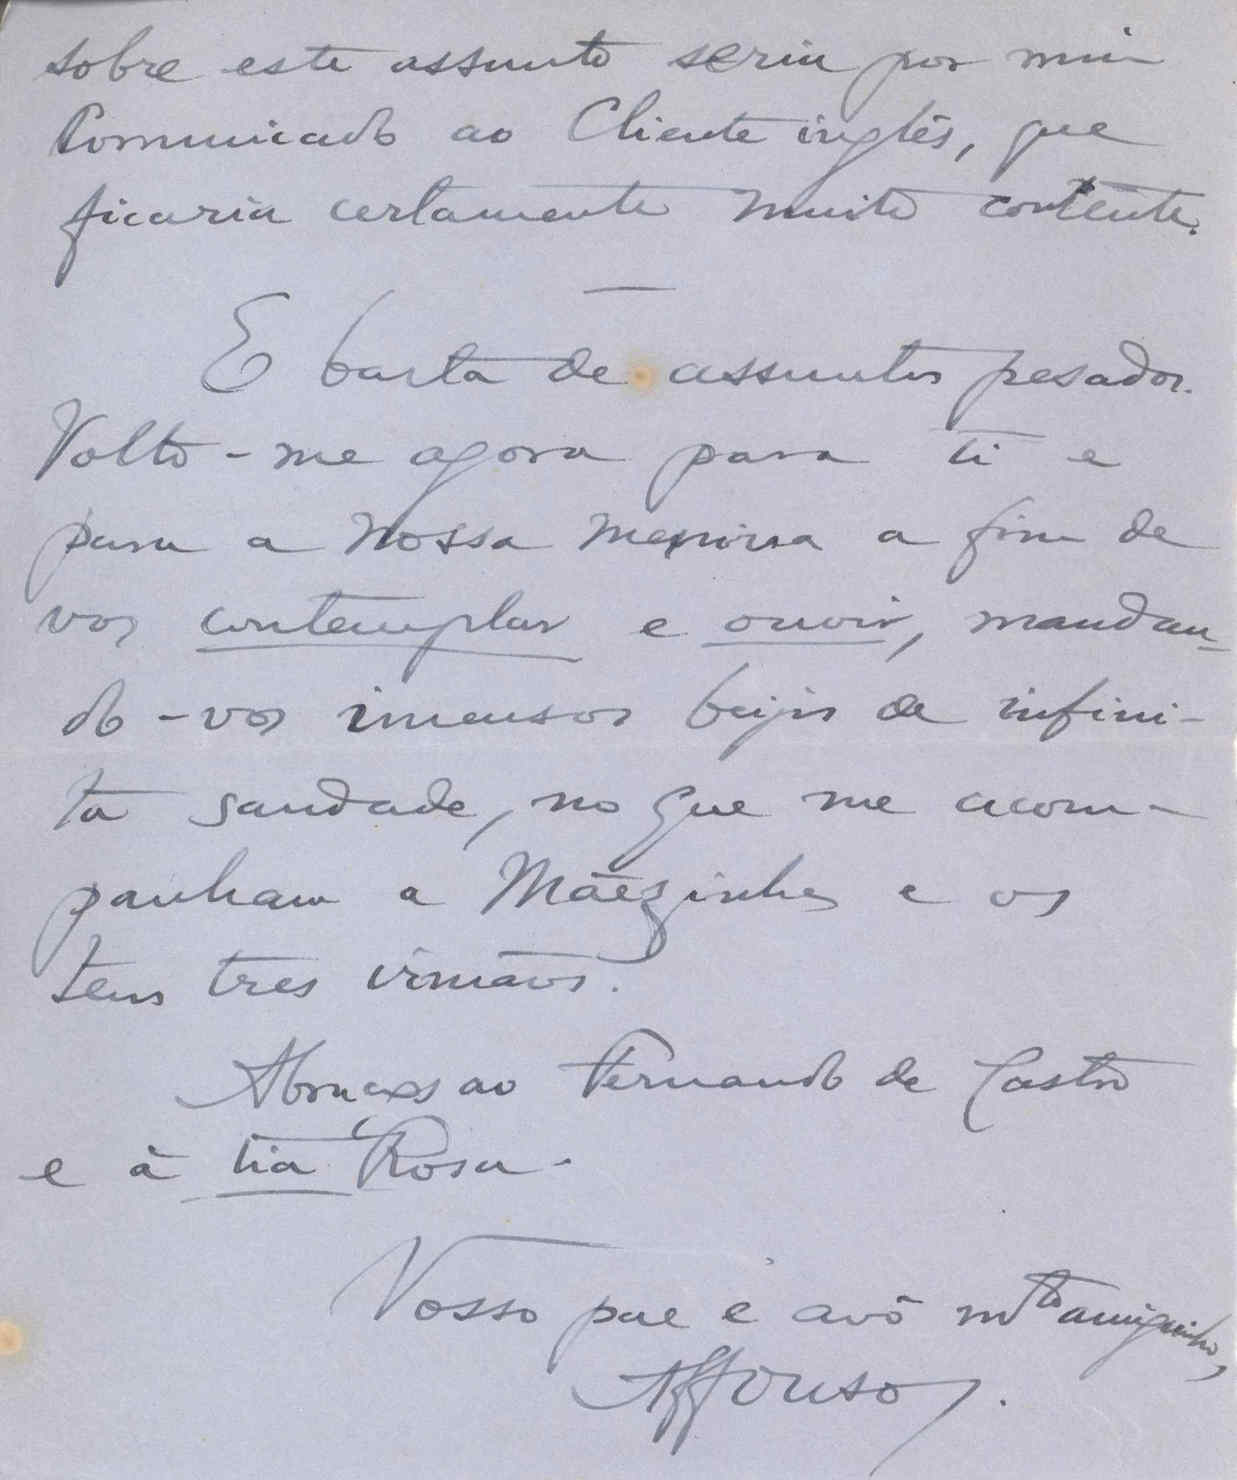 sobre este assunto seria por mim
comunicado ao Cliente inglês, que
ficaria certamente muito contente.
E basta de assuntos pesados.
Volto-me agora para ti e
para a nossa menina a fim de
vos contemplar e ouvir, mandan-
do-vos imensos beijos de infini-
ta saudade, no que me acom-
panham a Mãezinha e os
teus tres irmãos.
Abraços ao Fernando de Castro
e à tia Rosa.
Vosso pae e avô mto amiguinho,
Affonso.